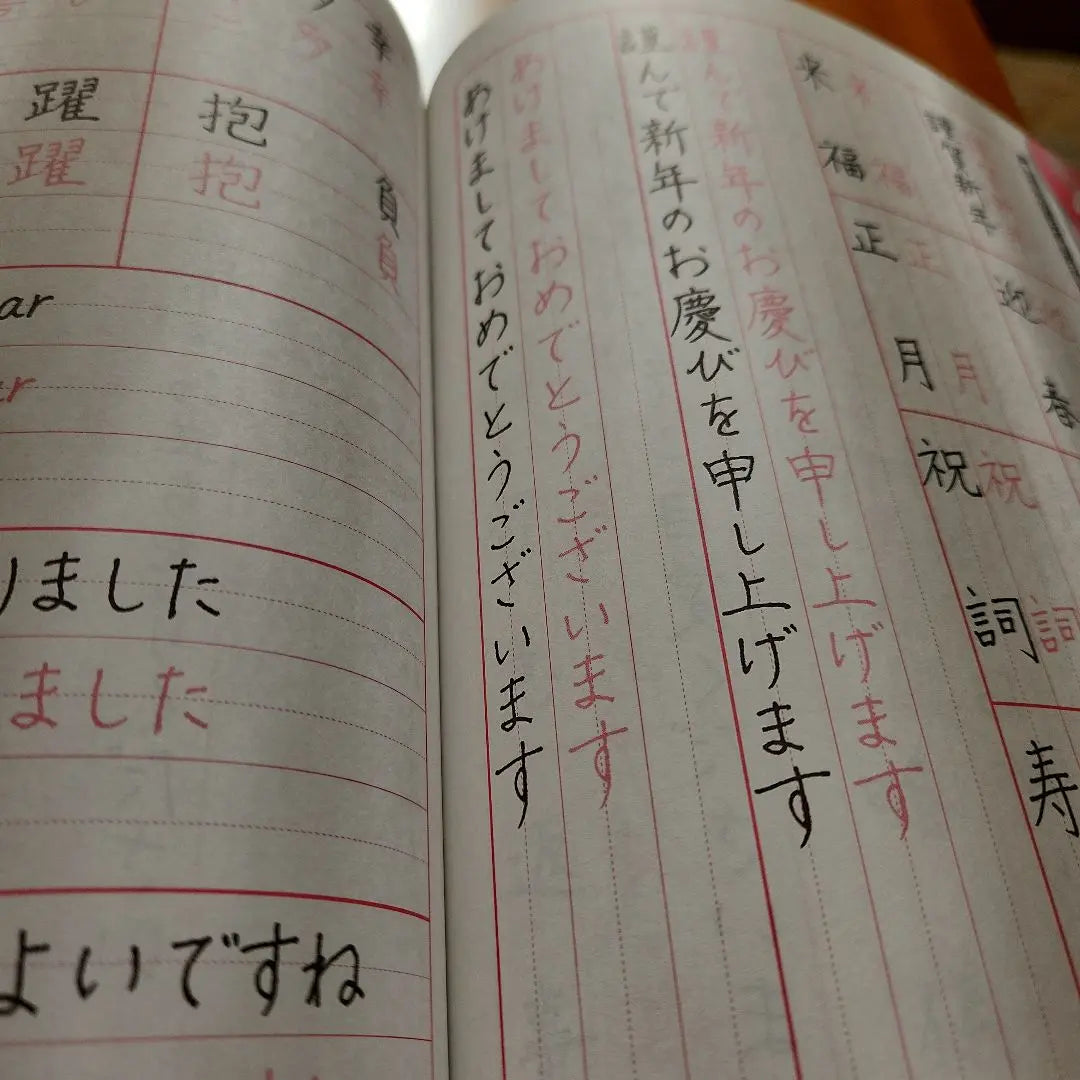 幸
幸
負
負
抱
抱
躍
躍
ar
r
りました
ました
よいですね
謹賀新年
迎
春
寿
祝
祝
詞
詞
正
正
月
月
来
来
福
福
謹んで新年のお慶びを申し上げます
謹んで新年のお慶びを申し上げます
あけましておめでとうございます
あけましておめでとうございます